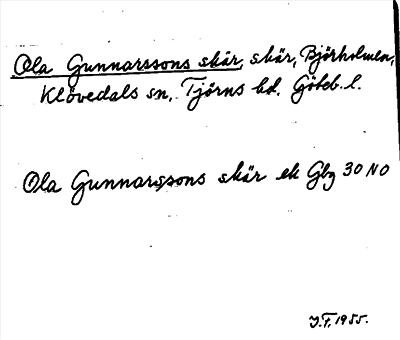 Ola Gunnarssons skär, skär, Björholmen,
Klövedals sn, Tjörns hd. Göteb. l.
Ola Gunnarssons skär ek Gbg 30 NO
J.F. 1955.